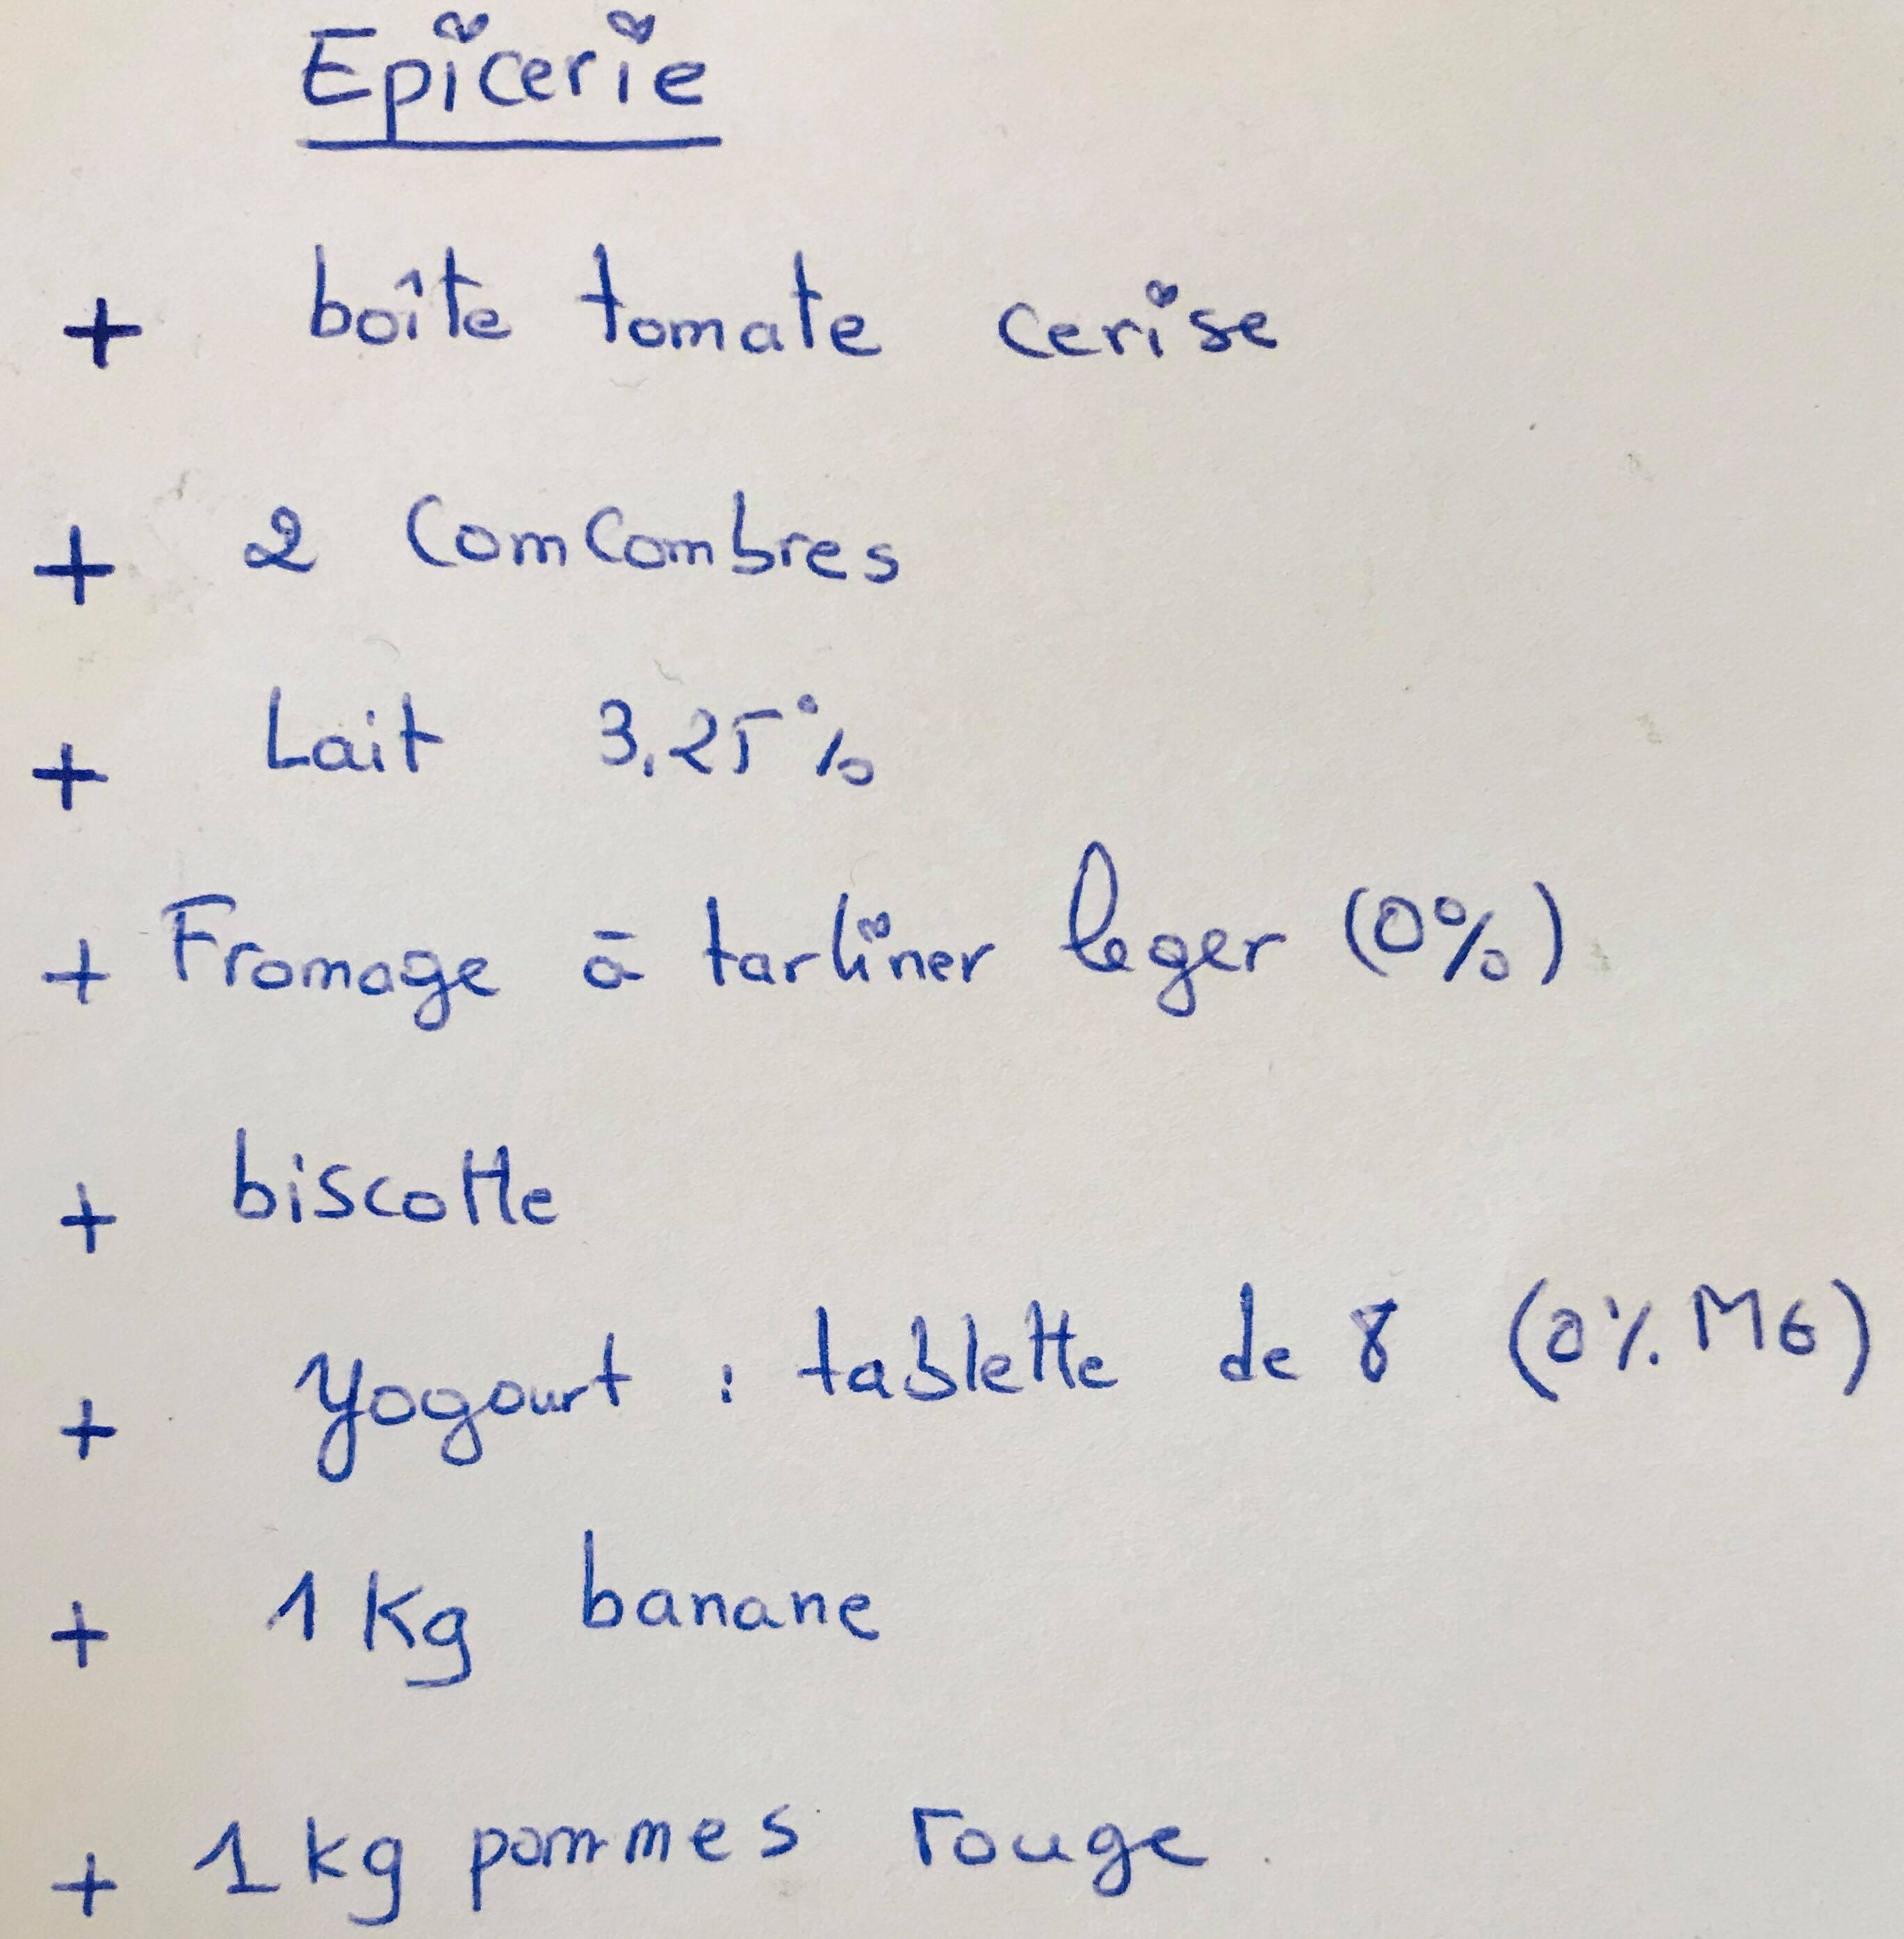 Epicerie
+ boîte tomate cerise
+ 2 ComCombres
+ Lait 3,25%
+ Fromage à tartiner leger (0%)
+ biscotte
+ yogourt : tablette de 8 (0% MG)
+ 1 Kg banane
+ 1 kg pommes rouge